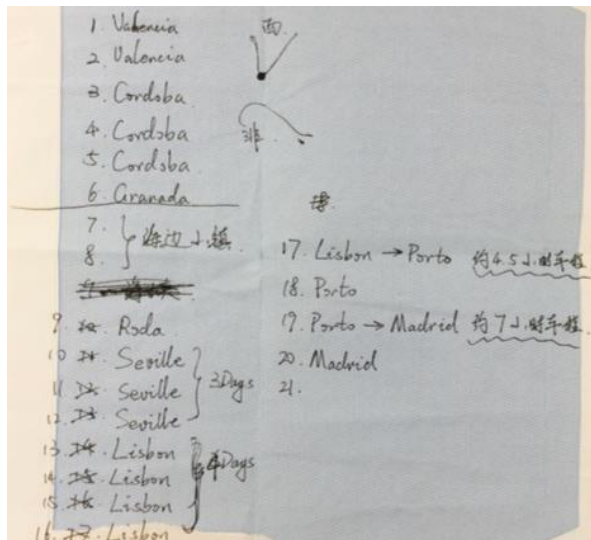 1. Valencia
2. Valencia
3. Cordoba
4. Cordoba
5. Cordoba
6. Granada
7.
8.
海边小镇
9. Roda
10. Seville
11. Seville
12. Seville
3 Days
13. Lisbon
14. Lisbon
15. Lisbon
16. Lisbon
4 Days
面
非
17. Lisbon → Porto 约4.5小时车程
18. Porto
19. Porto → Madrid 约7小时车程
20. Madrid
21.